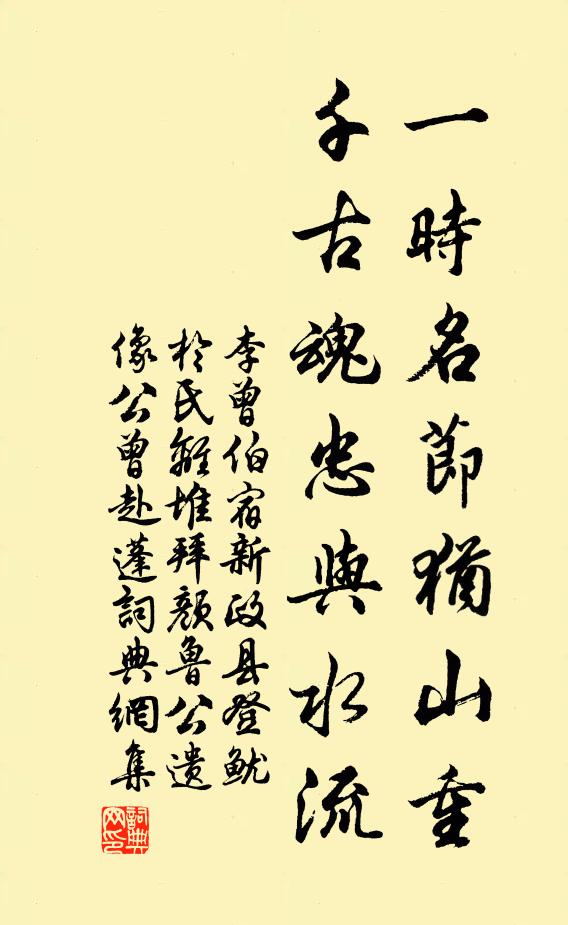 一時名節猶山重
千古魂忠與水流
李曾伯宿新政县登鱿
於民離堆拜颜魯公遗
像公曾赴蓬詞典網集
詞典网印